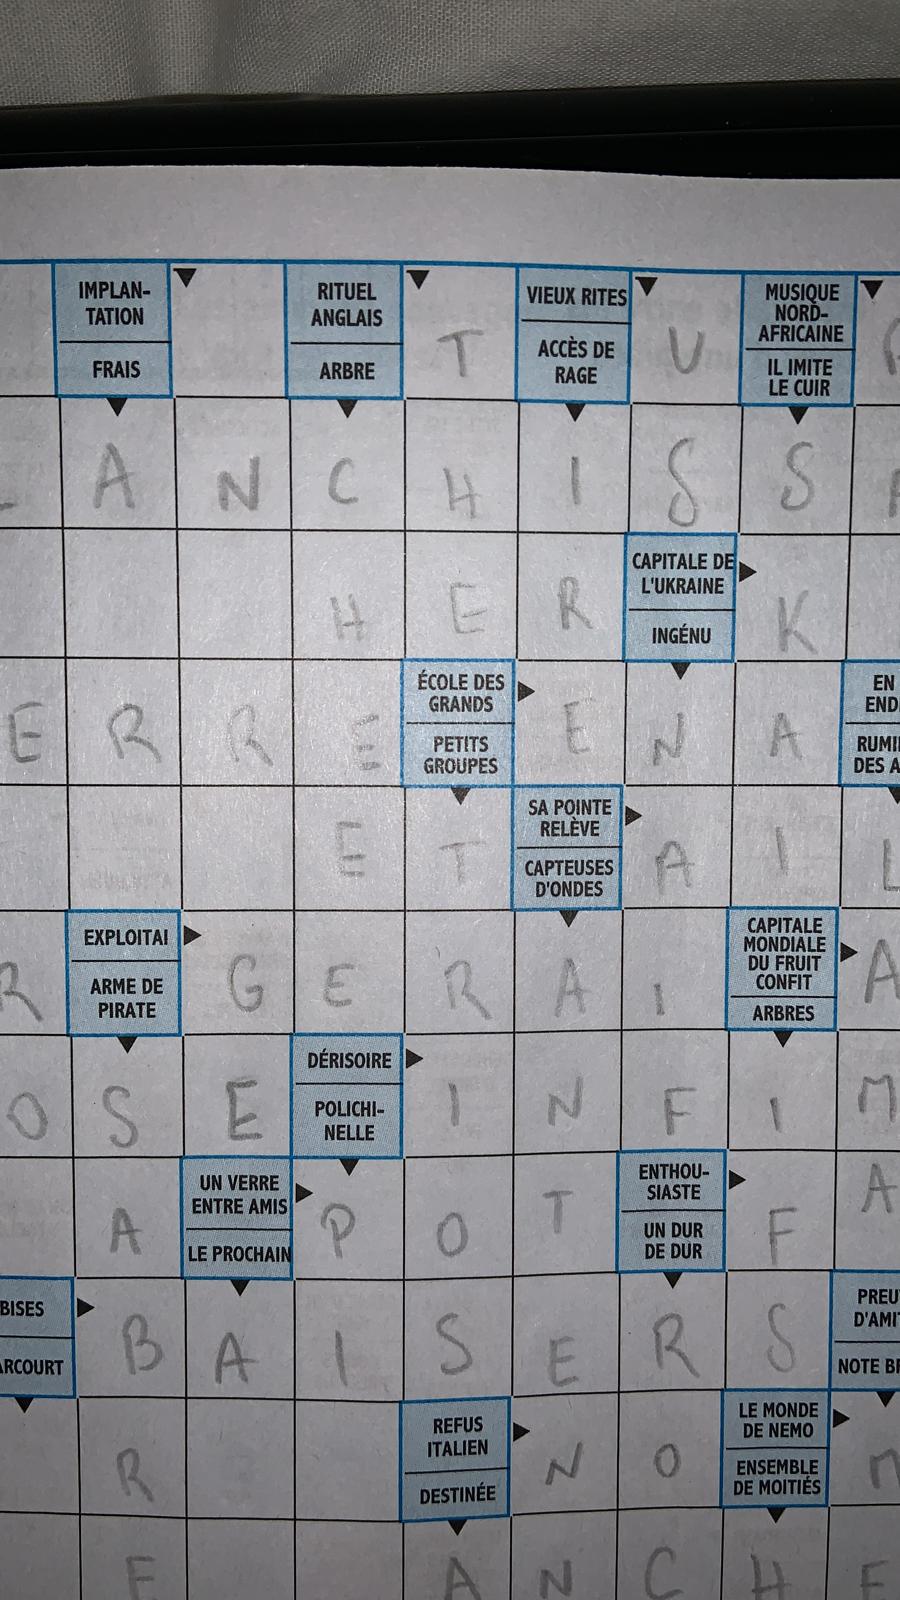 IMPLAN-
TATION
FRAIS
RITUEL
ANGLAIS
ARBRE
T
VIEUX RITES
ACCÈS DE
RAGE
U
MUSIQUE
NORD-
AFRICAINE
IL IMITE
LE CUIR
A N C H I S S
H E R
CAPITALE DE
L'UKRAINE
INGÉNU
K
E R R E
ÉCOLE DES
GRANDS
PETITS
GROUPES
E N A
EN
END
RUMI
DES A
E T
SA POINTE
RELÈVE
CAPTEUSES
D'ONDES
A I L
R
EXPLOITAI
ARME DE
PIRATE
G E R A I
CAPITALE
MONDIALE
DU FRUIT
CONFIT
ARBRES
A
O S E
DÉRISOIRE
POLICHI-
NELLE
I N F I M
A
UN VERRE
ENTRE AMIS
LE PROCHAIN
P O T
ENTHOU-
SIASTE
UN DUR
DE DUR
F A
BISES
ARCOURT
B A I S E R S
PREU
D'AMI
NOTE B
R
REFUS
ITALIEN
DESTINÉE
N O
LE MONDE
DE NEMO
ENSEMBLE
DE MOITIÉS
M
E A N C H E